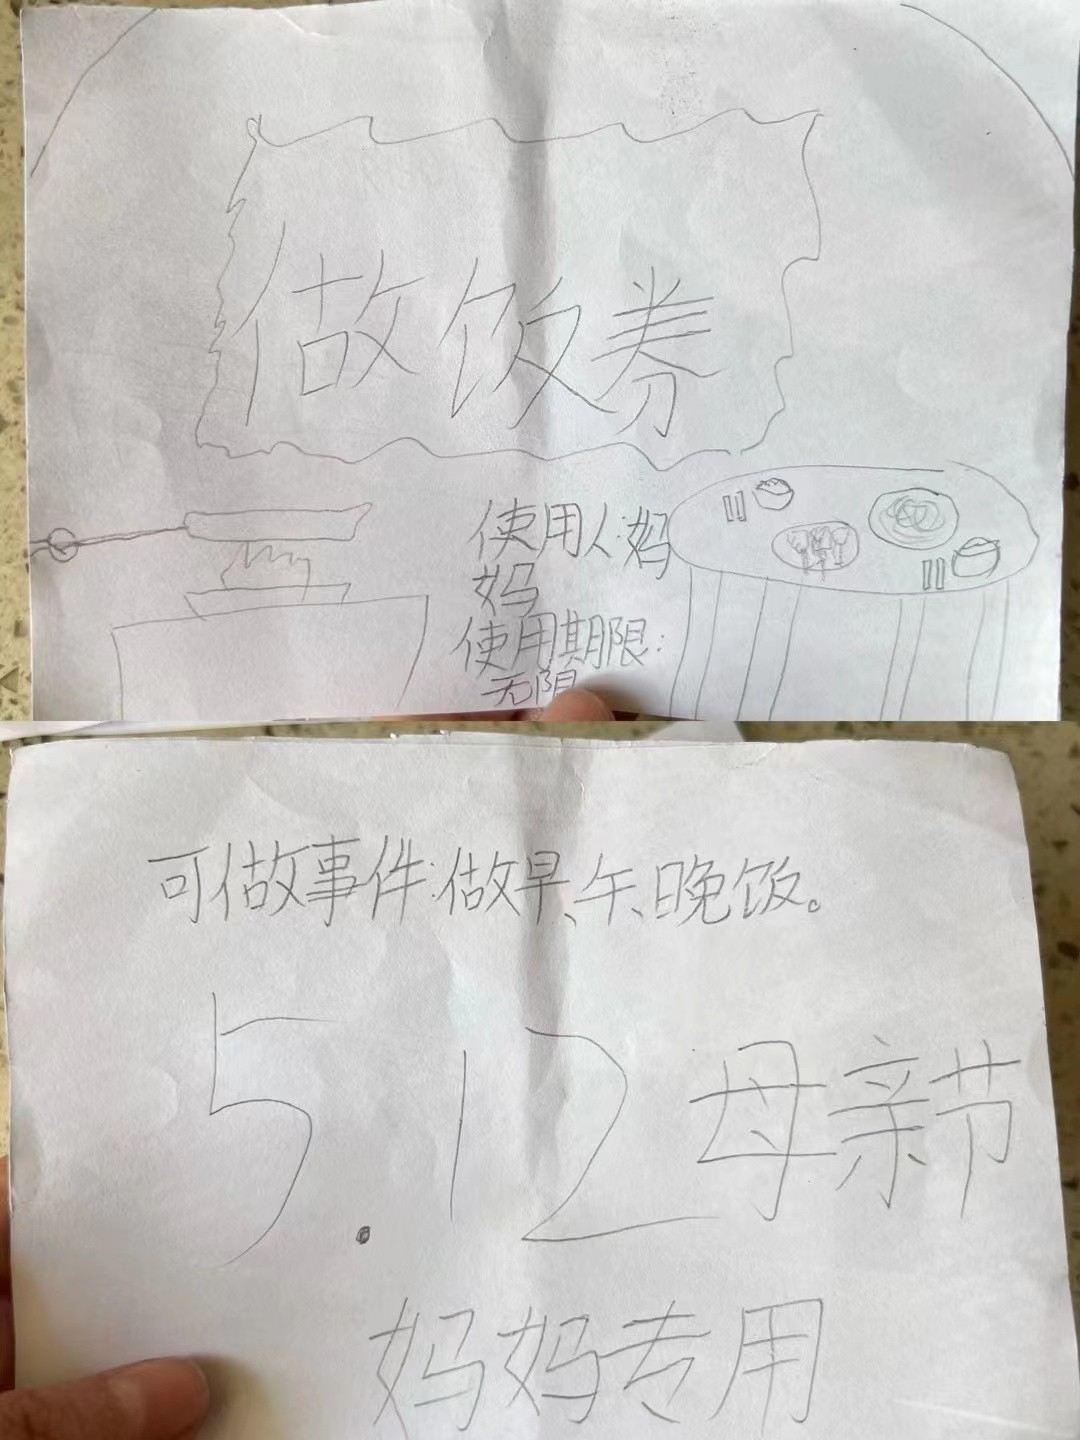 做饭券
使用人:妈
妈
使用期限:
无限
可做事件:做早、午、晚饭。
5.12母亲节
妈妈专用